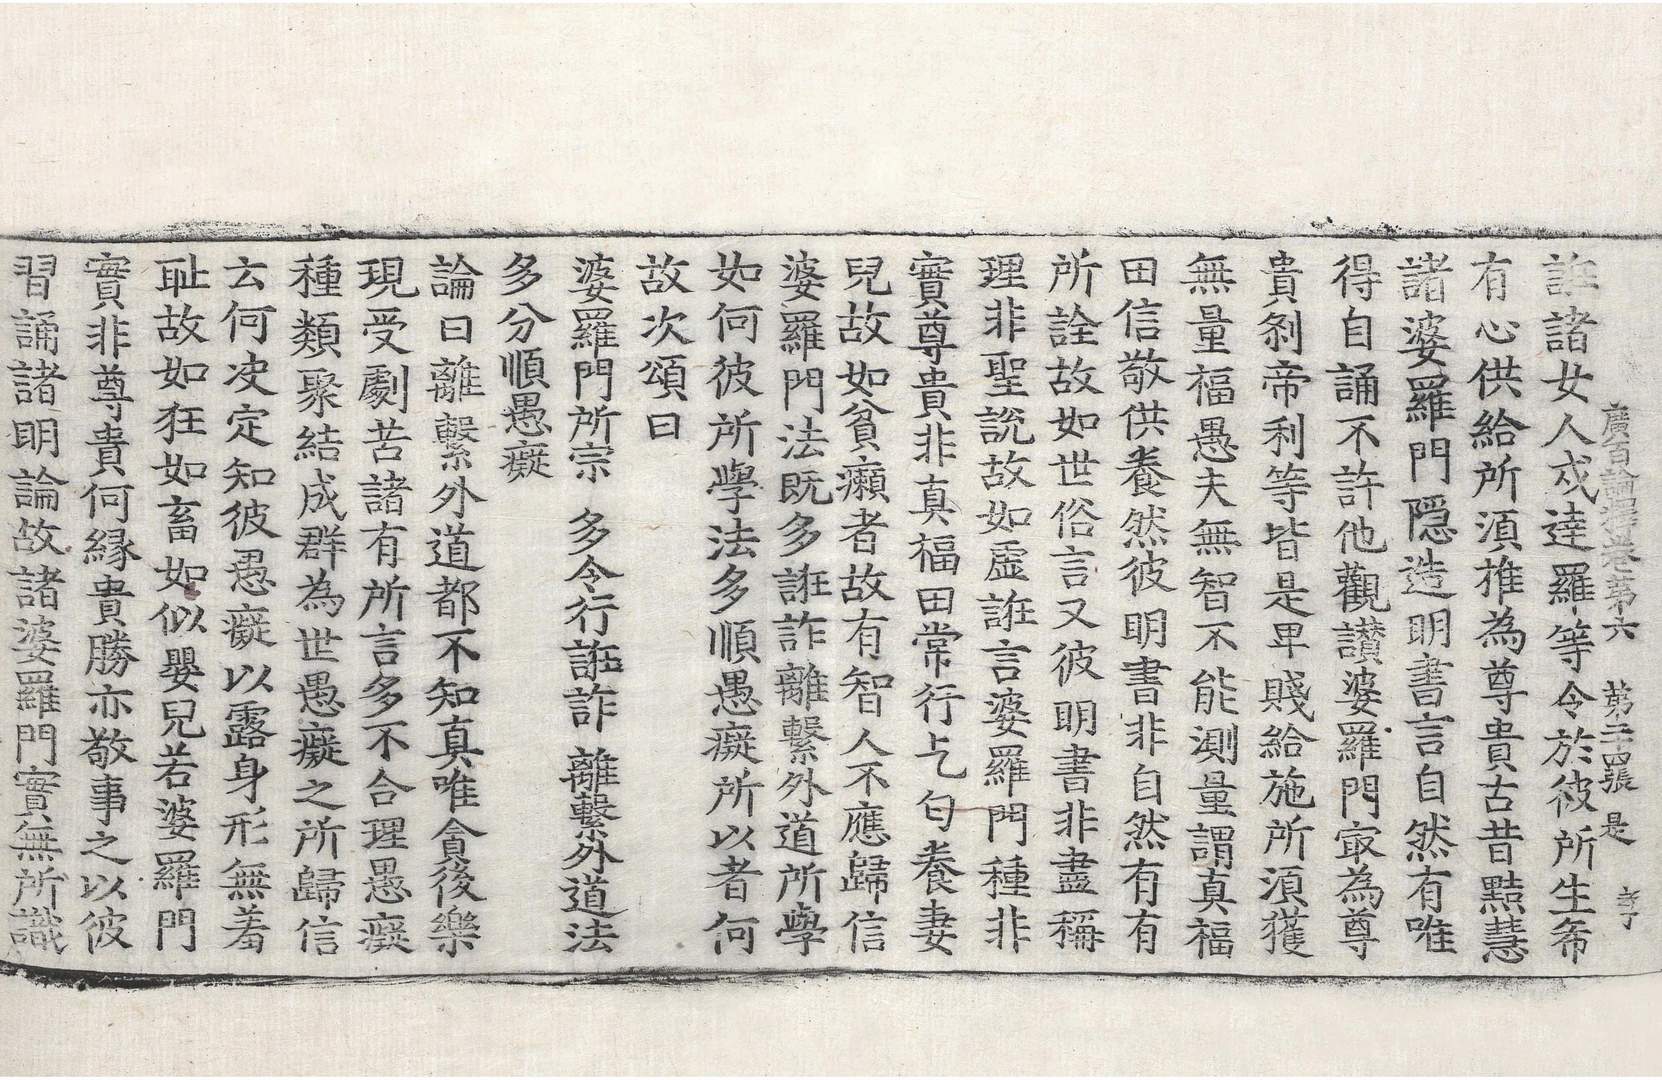 廣百論釋論卷第六　第二十四張　是
誑諸女人戍達羅等令於彼所生希
有心供給所須推為尊貴古昔黠慧
諸婆羅門隱造明書言自然有唯
得自誦不許他觀讚婆羅門㝡為尊
貴刹帝利等皆是卑賤給施所須獲
無量福愚夫無智不能測量謂真福
田信敬供養然彼明書非自然有有
所詮故如世俗言又彼明書非盡稱
理非聖說故如虛誑言婆羅門種非
實尊貴非真福田常行乞匃養妻
兒故如貧癩者故有智人不應歸信
婆羅門法既多誑詐離繫外道所學
如何彼所學法多順愚癡所以者何
故次頌曰
婆羅門所宗　多令行誑詐　離繫外道法
多分順愚癡
論曰離繫外道都不知真唯貪後樂
現受劇苦諸有所言多不合理愚癡
種類聚結成群為世愚癡之所歸信
云何决定知彼愚癡以露身形無羞
耻故如狂如畜如似嬰兒若婆羅門
實非尊貴何緣貴勝亦敬事之以彼
習誦諸明論故諸婆羅門實無所識